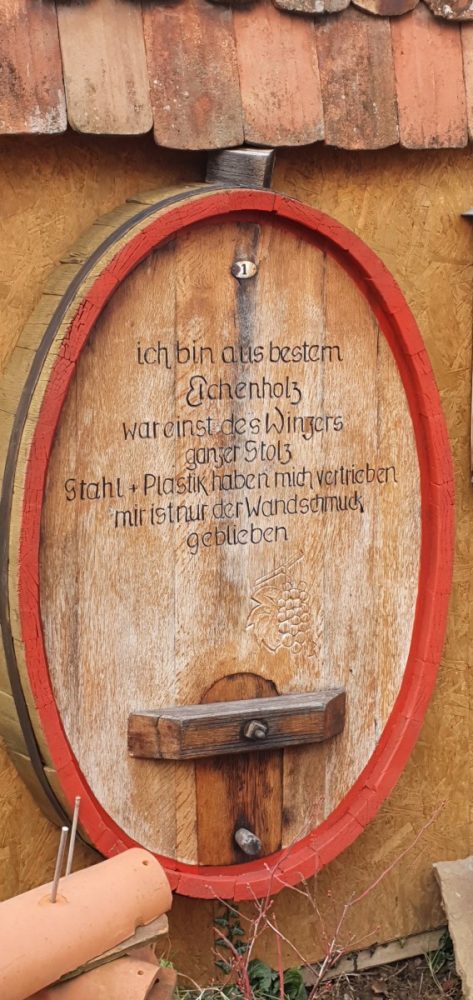 1
ich bin aus bestem
Eichenholz
war einst des Winzers
ganzer Stolz
Stahl + Plastik haben mich vertrieben
mir ist nur der Wandschmuck
geblieben